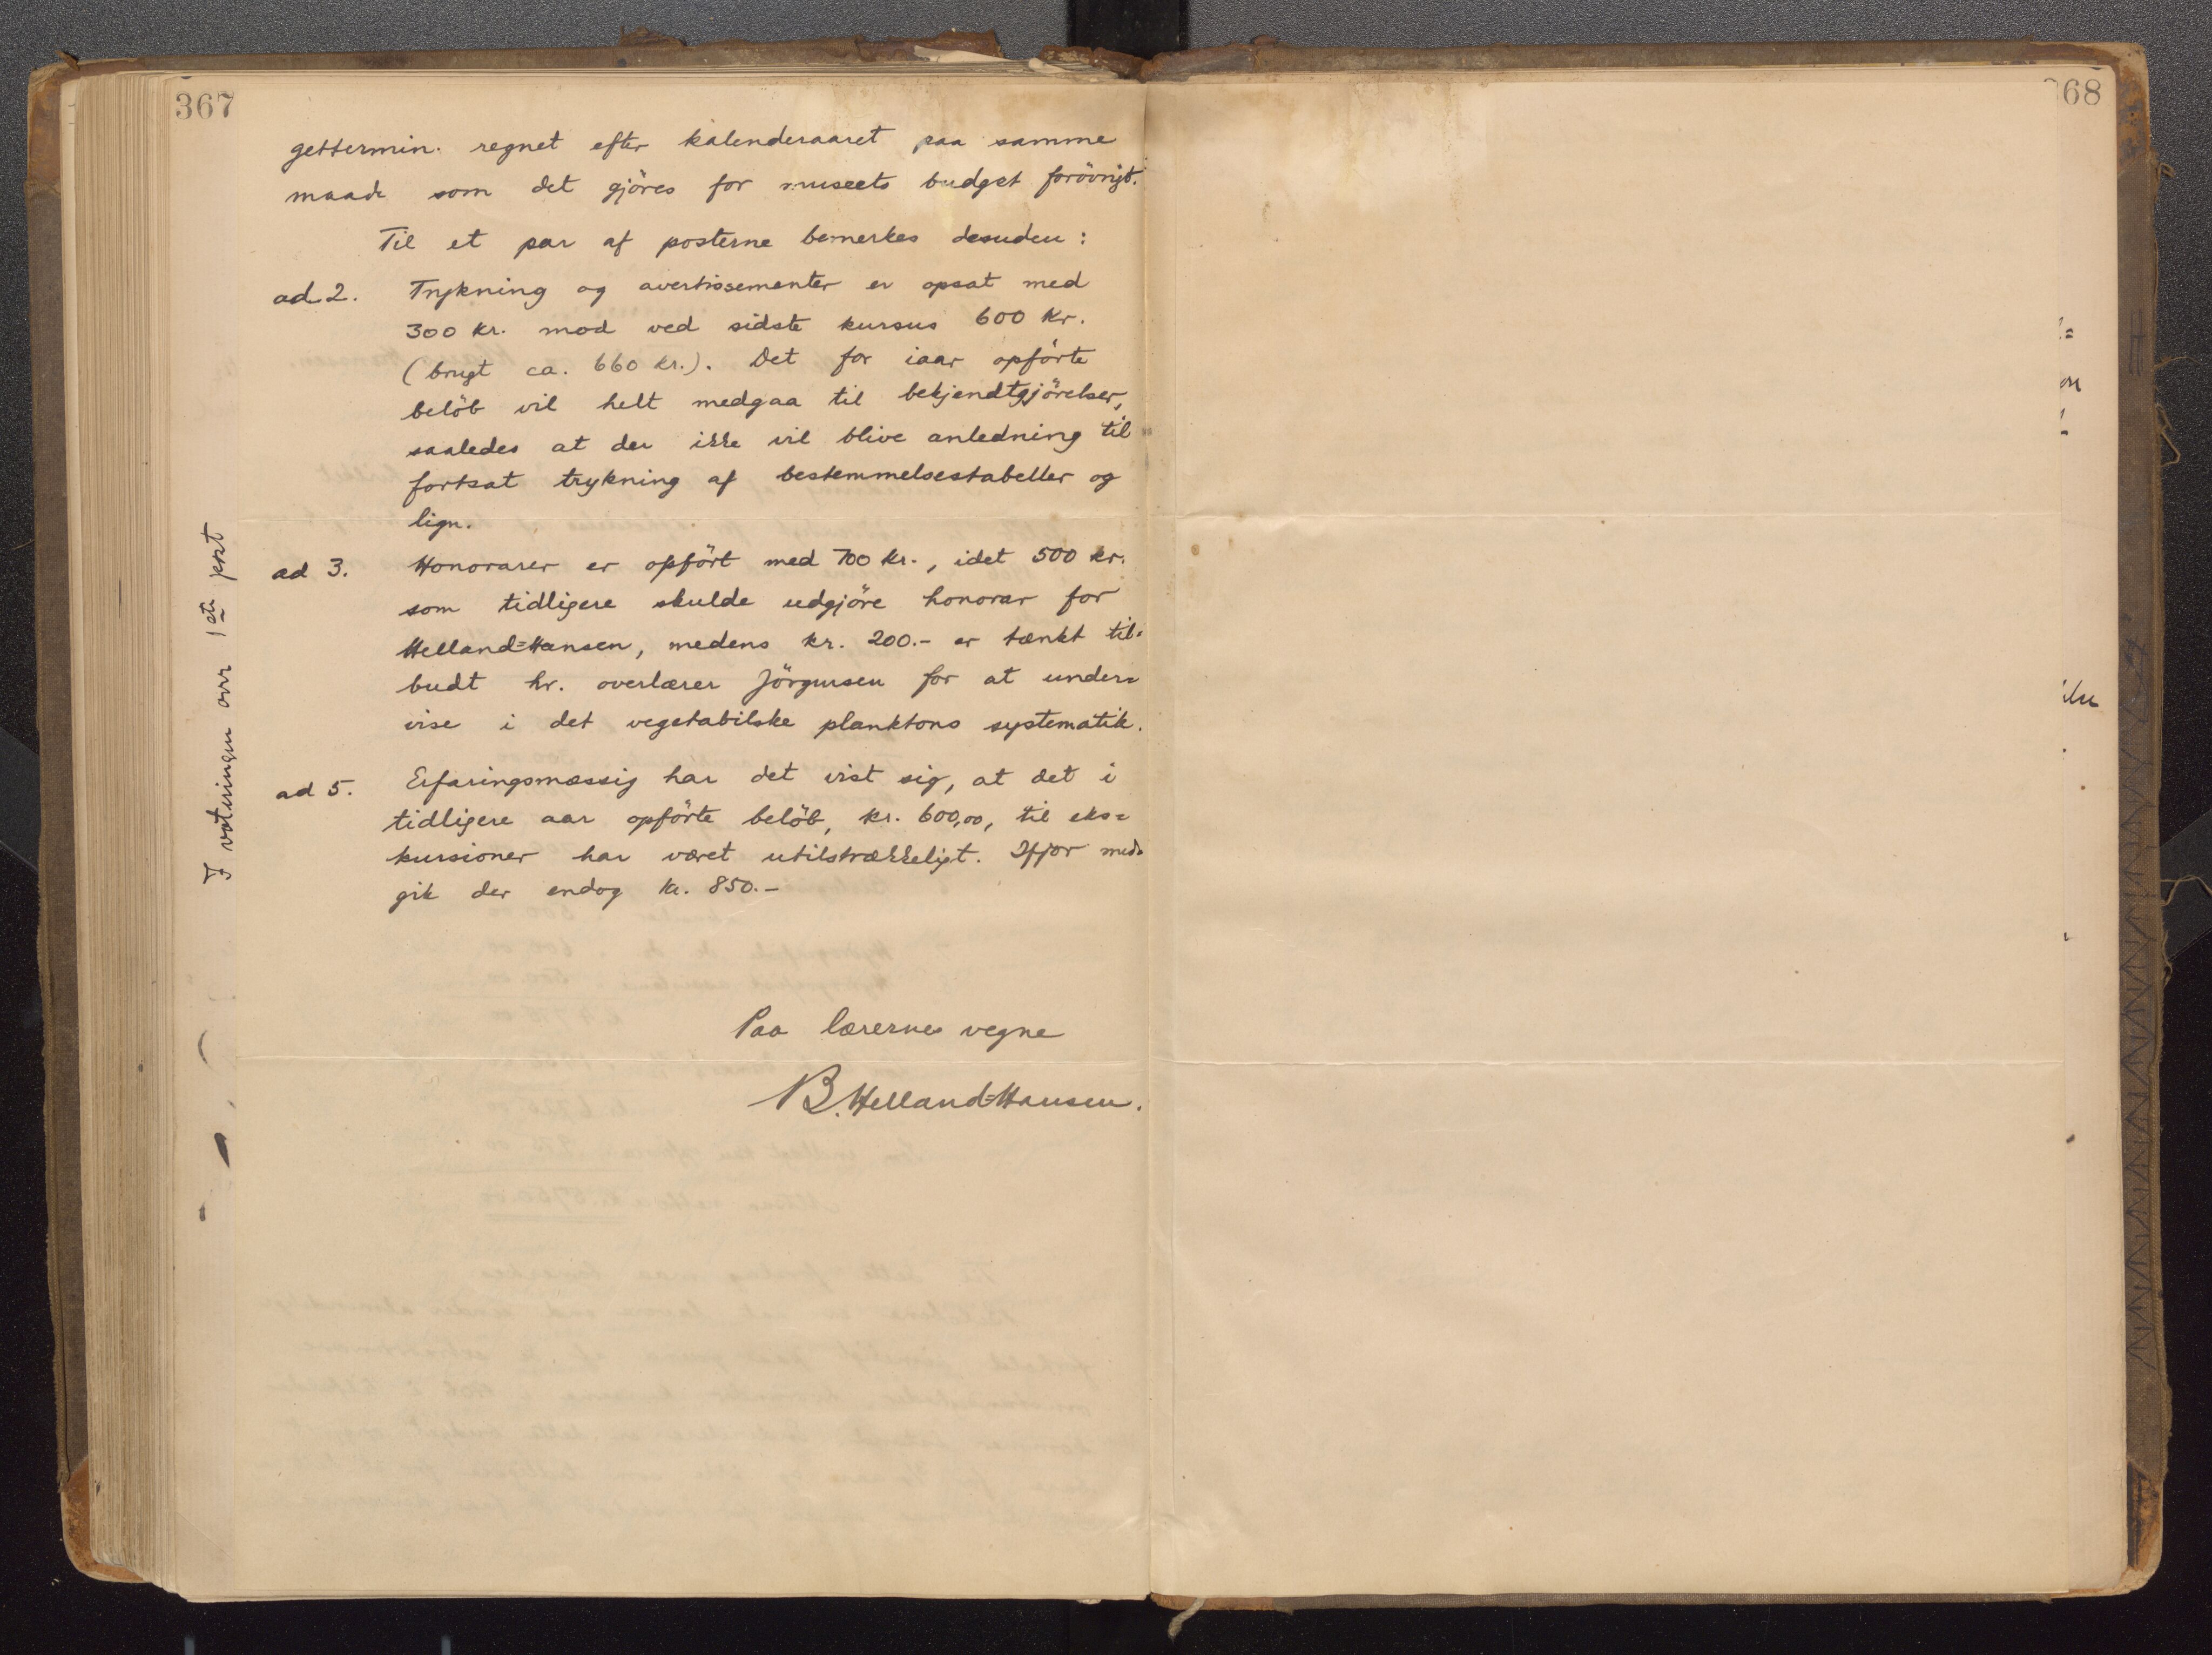 367
gettermin. regnet efter kalenderaaret paa samme
maade som det gjöres for museets budget forövrigt.
Til et par af posterne bemerkes desuden:
ad 2. Trykning og avertissementer er opsat med
300 kr. mod ved sidste kursus 600 kr.
(brugt ca. 660 kr.). Det for iaar opförte
belöb vil helt medgaa til bekjendtgjörelser,
saaledes at der ikke vil blive anledning til
fortsat trykning af bestemmelsestabeller og
lign.
ad 3. Honorarer er opfört med 700 kr., idet 500 kr.
som tidligere skulde udgjöre honorar for
Helland=Hansen, medens kr. 200.- er tænkt til=
budt hr. overlærer Jörgensen for at under=
vise i det vegetabilske planktons systematik.
ad 5. Erfaringsmæssig har det vist sig, at det i
tidligere aar opförte belöb, kr. 600,00, til eks=
kursioner har været utilstrækkeligt. Ifjor med=
gik der endog kr. 850.-
Paa lærernes vegne
B. Helland=Hansen.
I voteringen over 1ste post
68